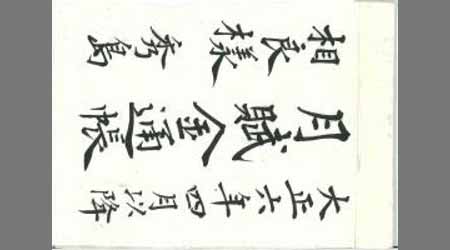 大正六年四月以降
月賦入金通帳
相良様 秀島